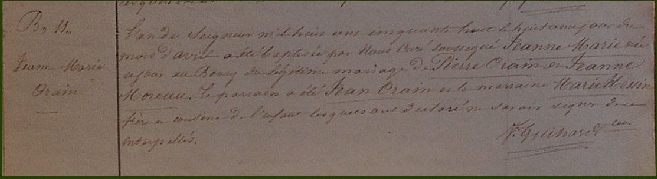 Bn 11.
Jeanne Marie
Orain
L'an du Seigneur mil huit cent cinquante huit le huit du
mois d'avril a été baptisée par Nous Curé soussigné Jeanne Marie née
ce jour au Bourg du légitime mariage de Pierre Orain et Jeanne
Moreau. Le parrain a été Jean Orain et la marraine Marie
frère et cousine de l'enfant lesquels ont déclaré ne savoir signer de ce
interpellés.